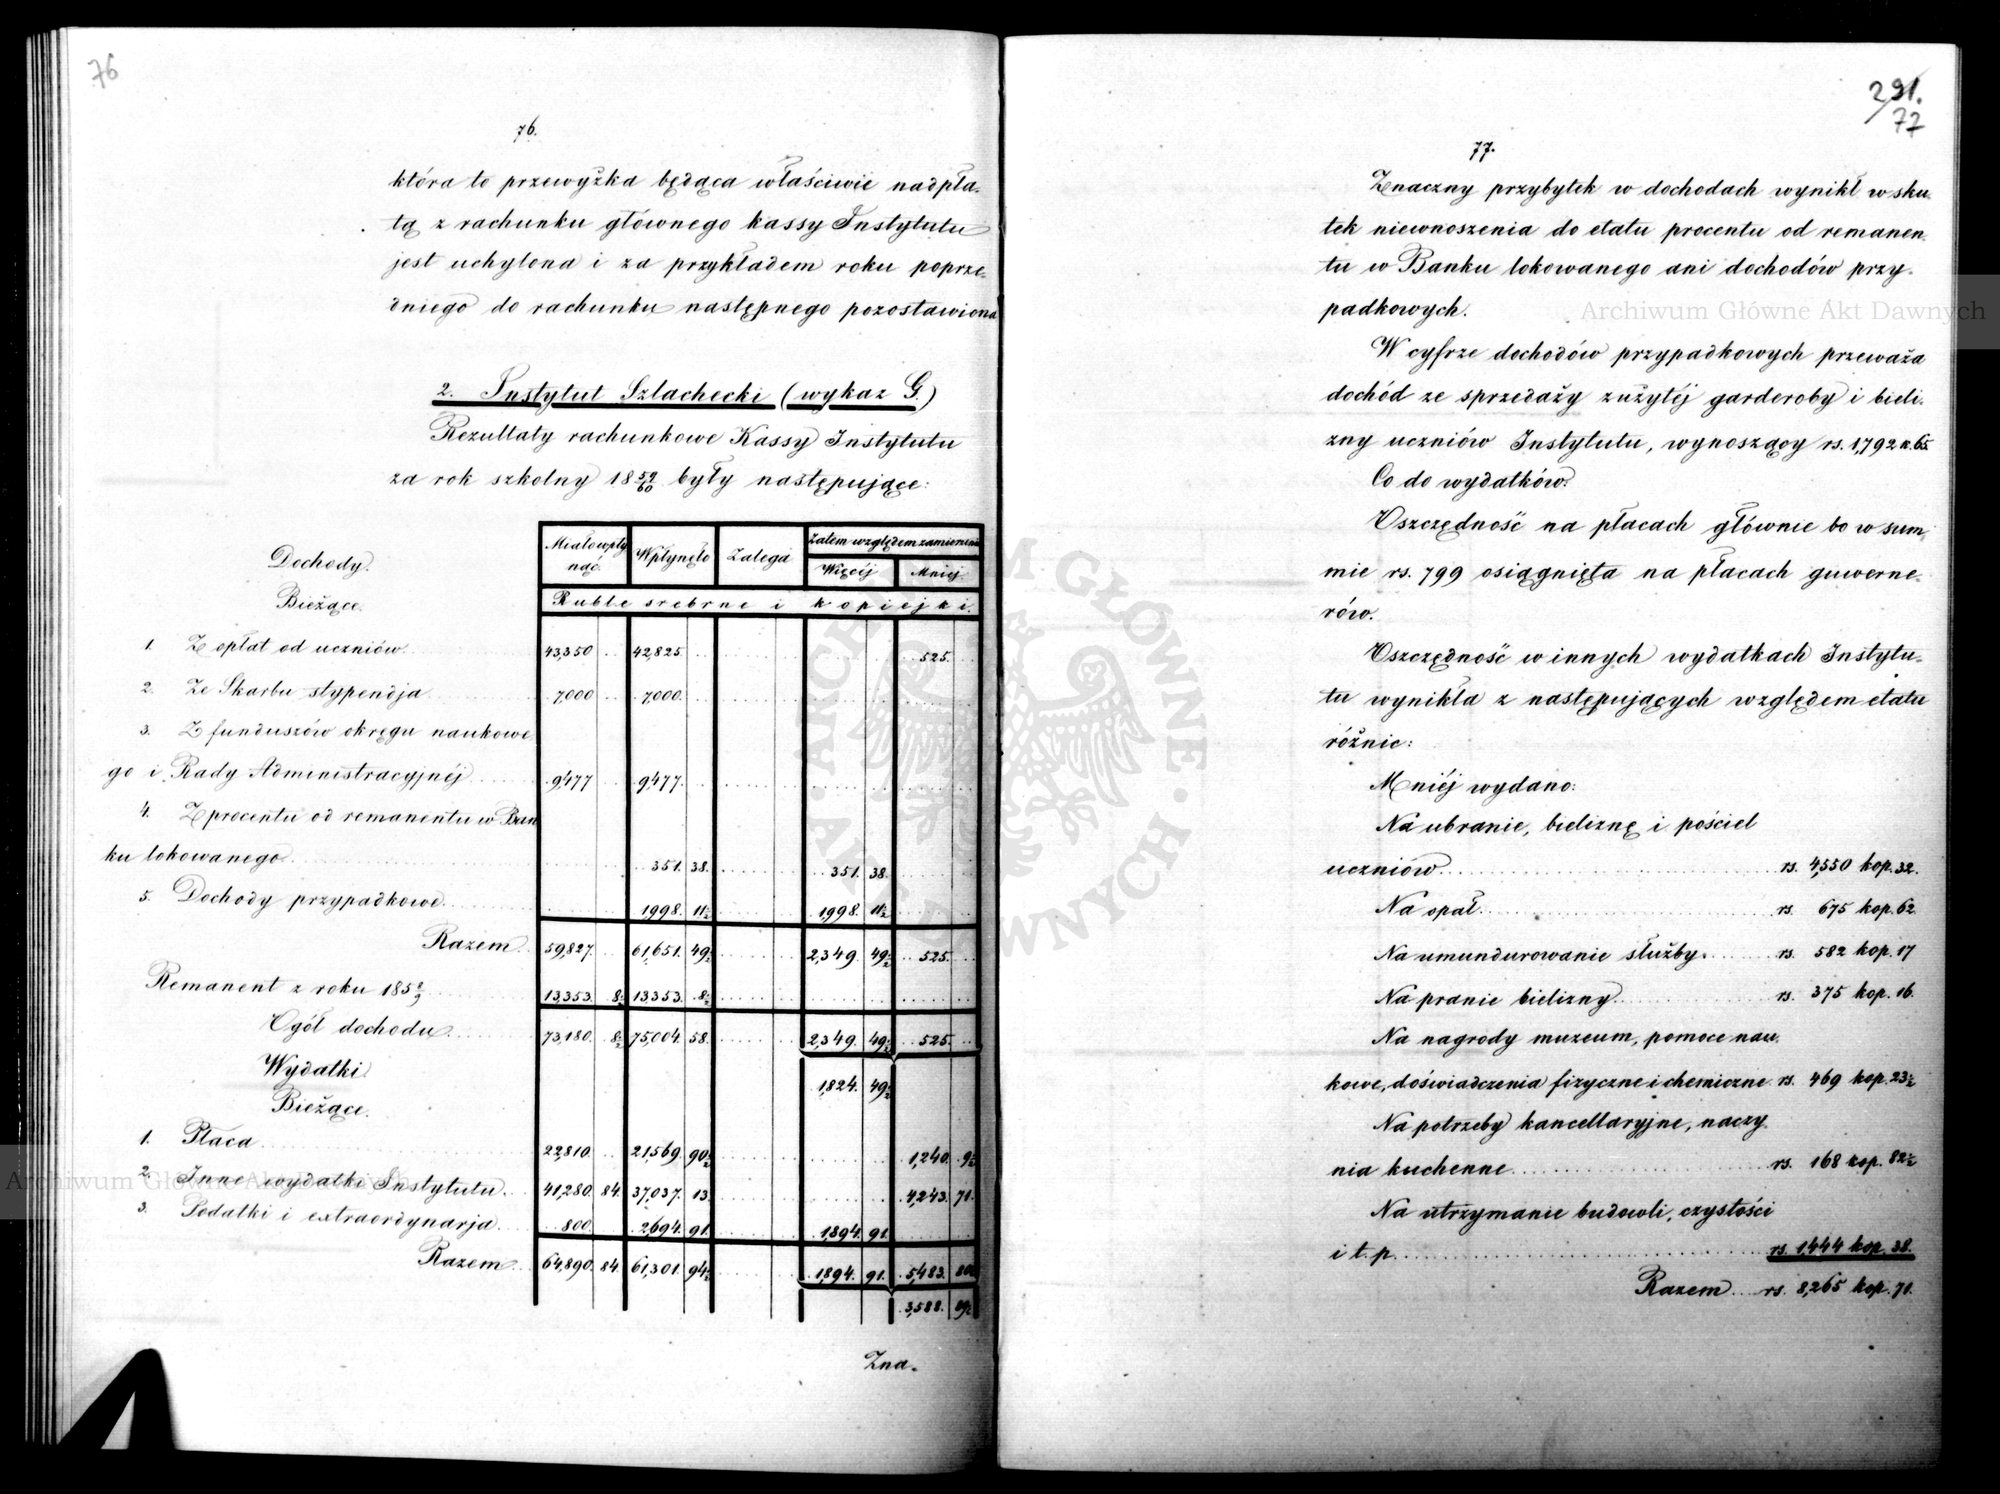 76
76.
która to przewyżka będąca właściwie nadpła-
tą z rachunku głównego kassy Instytutu
jest uchylona i za przykładem roku poprze-
dniego do rachunku następnego pozostawiona
2. Instytut Szlachecki (wykaz G.)
Rezultaty rachunkowe Kassy Instytutu
za rok szkolny 18 59/60 były następujące:
Dochody.
Bieżące.
Miało wpły nąć. Wpłynęło Zalega Zatem względem zamierzenia
Więcéj Mniéj.
Ruble srebrne i kopiejki.
1. Z opłat od uczniów 43,350 42,825. 525.
2. Ze Skarbu stypendja 7,000 7,000.
3. Z funduszów okręgu naukowe
go i Rady Administracyjnéj 9,477 9,477.
4. Z procentu od remanentu w Ban
ku lokowanego 351. 38. 351. 38.
5. Dochody przypadkowe 1,998. 11½ 1,998. 11½
Razem 59,827. 61,651. 49½ 2,349. 49½ 525.
Remanent z roku 185 8/9 13,353. 8½ 13,353. 8½
Ogół dochodu 73,180. 8½ 75,004. 58. 2,349. 49½ 525.
1,824. 49½
Wydatki
Bieżące.
1. Płaca 22,810. 21,569. 90½ 1,240. 9½
2. Inne wydatki Instytutu. 41,280. 84. 37,037. 13. 4,243. 71.
3. Podatki i extraordynarja 800. 2,694. 91. 1,894. 91.
Razem 64,890. 84. 61,301. 94½ 1,894. 91. 5,483. 80½
3,588. 89½
Zna-
291.
77
77.
Znaczny przybytek w dochodach wynikł w sku-
tek niewnoszenia do etatu procentu od remanen-
tu w Banku lokowanego ani dochodów przy-
padkowych.
W cyfrze dochodów przypadkowych przeważa
dochód ze sprzedaży zużytéj garderoby i bieli-
zny uczniów Instytutu, wynoszący rs. 1,792 k. 65.
Co do wydatków.
Oszczędność na płacach głównie bo w sum-
mie rs. 799 osiągnięta na płacach guwerne-
rów.
Oszczędność w innych wydatkach Instytu-
tu wynikła z następujących względem etatu
różnic:
Mniéj wydano:
Na ubranie, bieliznę i pościel
uczniów rs. 4,550 kop. 32.
Na opał rs. 675 kop. 62
Na umundurowanie służby. rs. 582 kop. 17
Na pranie bielizny rs. 375 kop. 16.
Na nagrody muzeum, pomoce nau-
kowe, doświadczenia fizyczne i chemiczne rs. 469 kop. 23½
Na potrzeby kancellaryjne, naczy-
nia kuchenne rs. 168 kop. 82½
Na utrzymanie budowli, czystości
i t. p. rs. 1,444 kop. 38.
Razem rs. 8,265 kop. 71.
Archiwum Główne Akt Dawnych
Archiwum Główne Akt Dawnych
ARCHIWUM GŁÓWNE AKT DAWNYCH